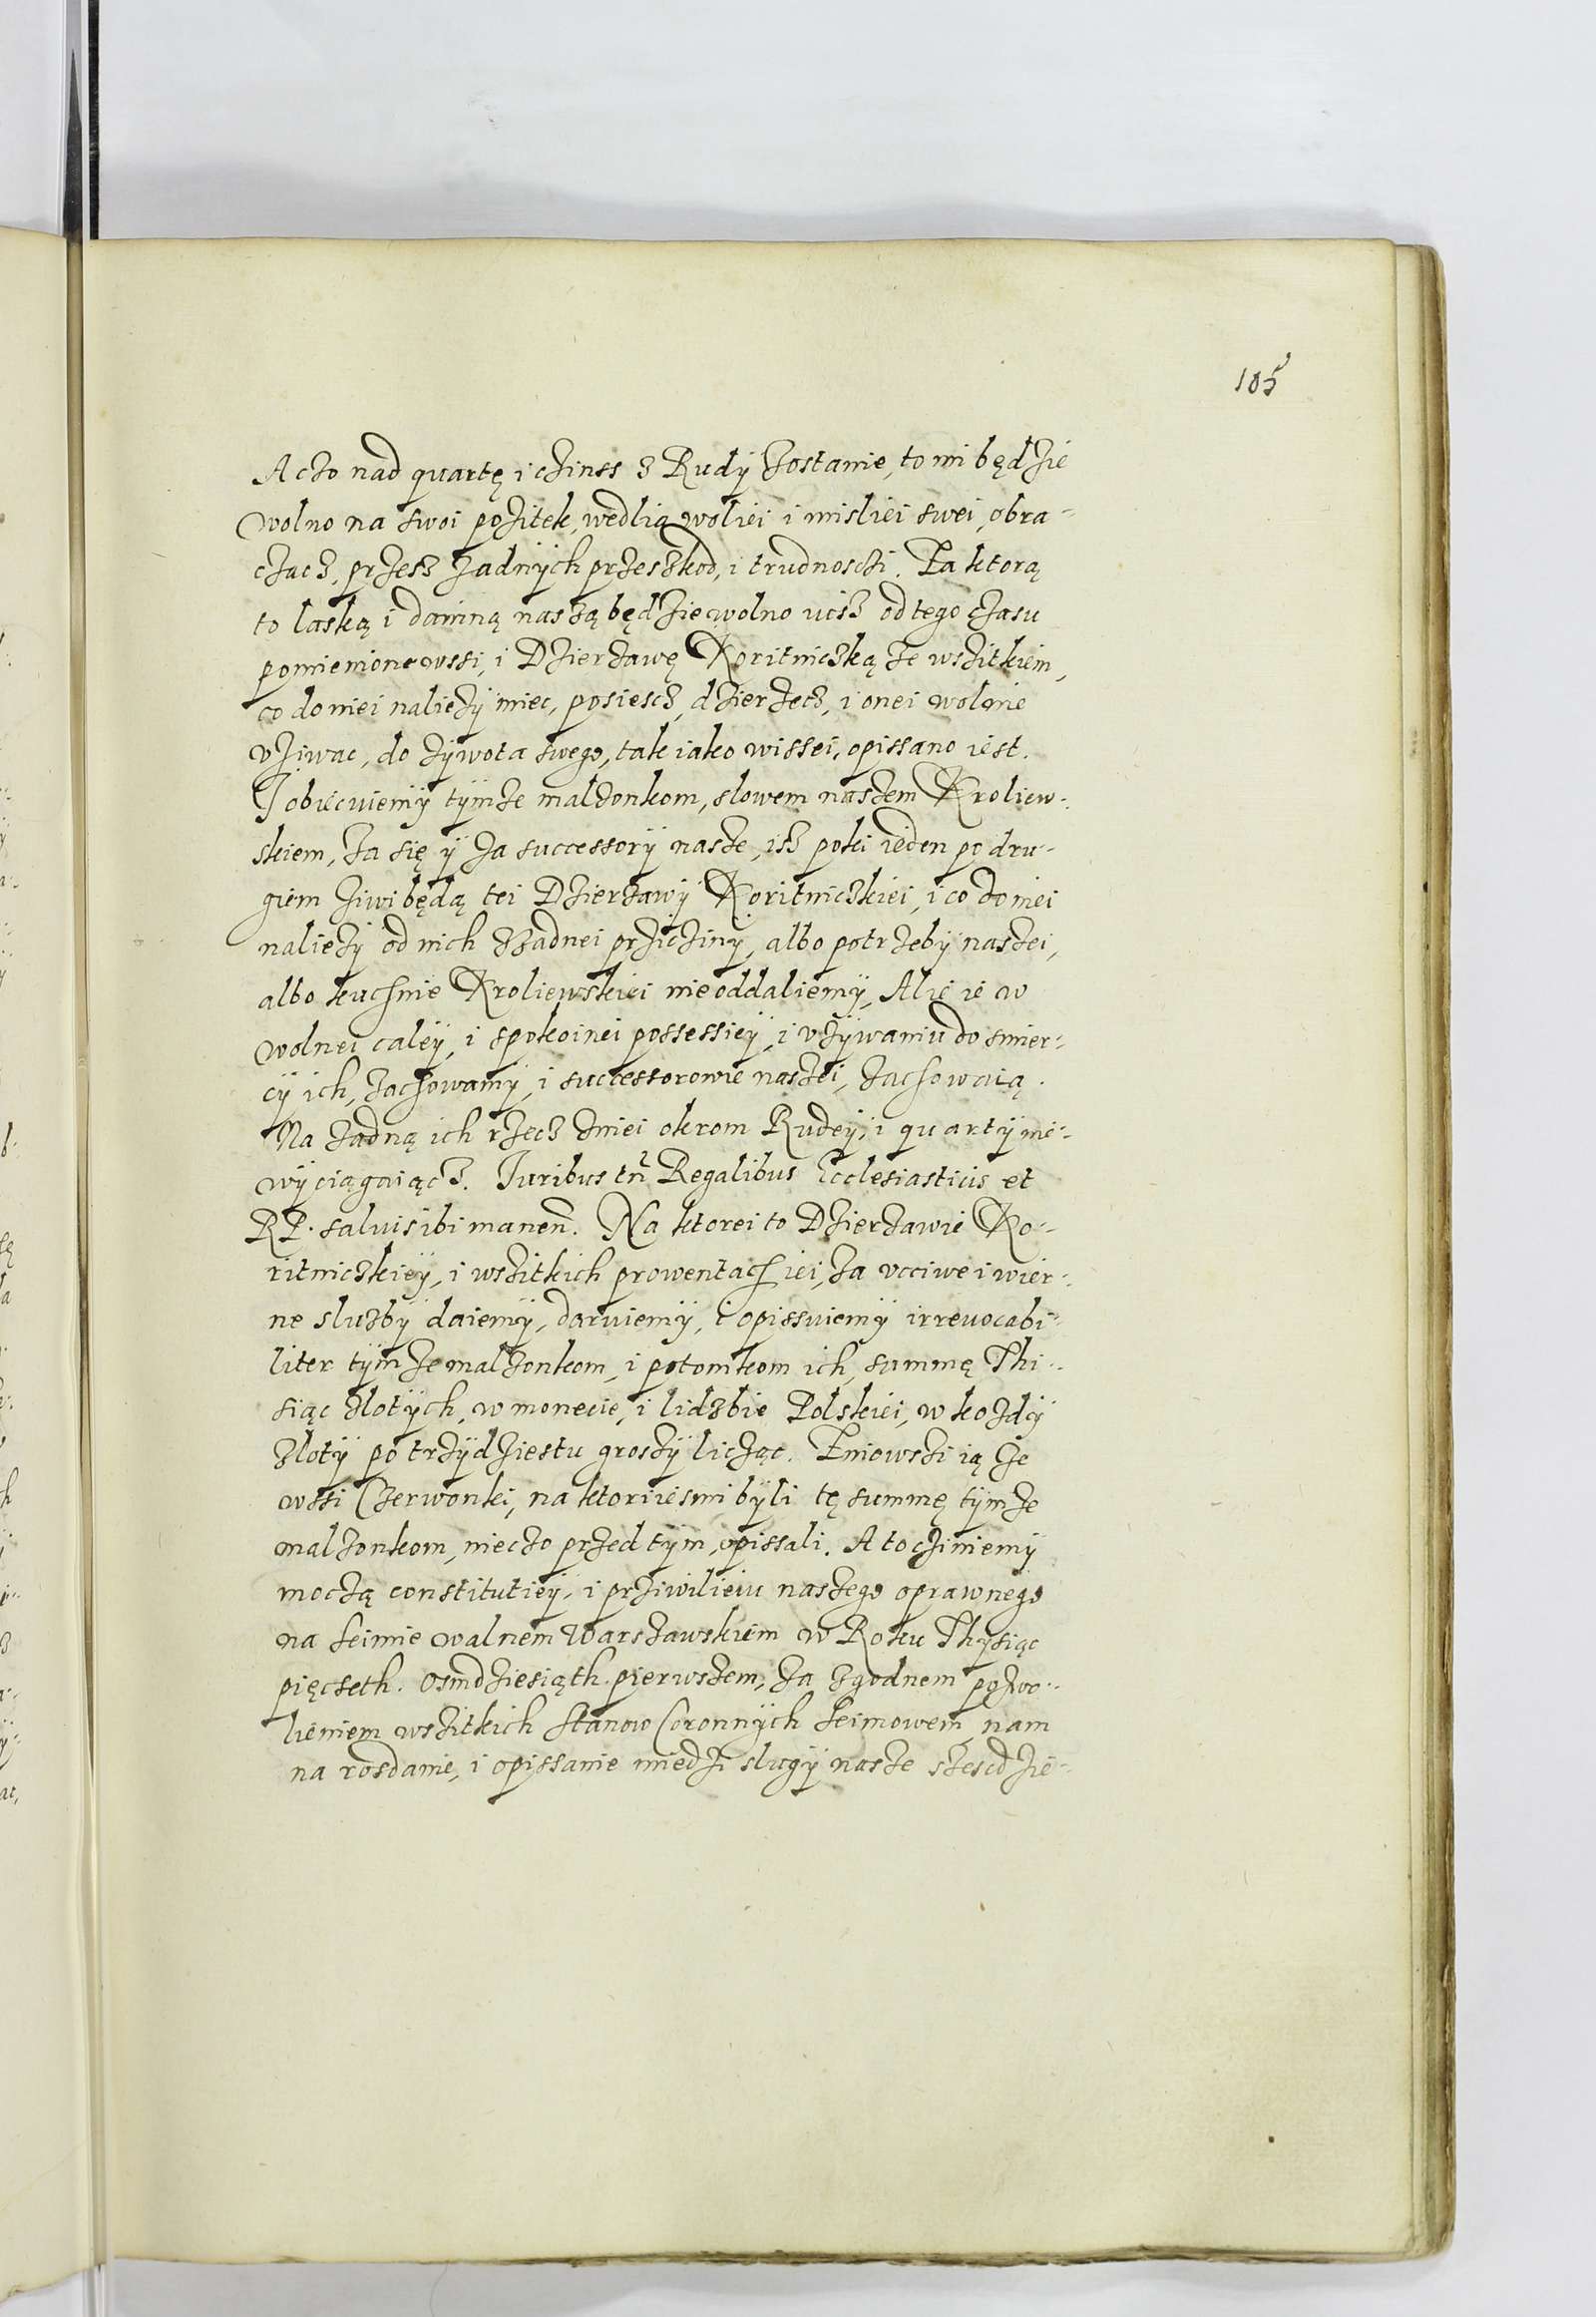 105
A czo nad quartę i czinss z Rudÿ zostanie, to mi będzie
wolno na swoi pozitek, wedlią woliei i misliei swei, obra-
czacz, przesz zadnÿch przeszkod, i trudnosczi. Za ktorą
to laską i daniną naszą będzie wolno ucisz od tego czasu
pomienione wssi, i Dzierzawę Koritniczką ze wszitkiem,
co do niei naliezÿ miec, posiescz, dzierzecz, i onei wolnie
vziwac, do zÿwota swego, tak iako wissei, opissano iest.
I obiecuiemÿ tÿmze malzonkom, slowem naszem Kroliew-
skiem, za się ÿ za successorÿ nasze, isz poki ieden po dru-
giem ziwi będą tei Dzierzawÿ Koritniczkiei, i co do niei
naliezÿ od nich zzadnei prziczinÿ, albo potrzebÿ naszei,
albo kuchnie Kroliewskiei nie oddaliemÿ, Alie ie w
wolnei calëÿ, i spokoinei possessieÿ, i vzÿwaniu do smier-
cÿ ich, zachowamÿ, i successorowie naszei, zachowaią.
Na zadną ich rzecz dniei okrom Rudeÿ, i quartÿ nie-
wÿciągaiącz. Iuribus tn̄ Regalibus Ecclesiasticis et
RP. saluis ibi manen̄. Na ktorei to Dzierzawie Ko-
ritniczkieÿ, i wszitkich prowentach iei, za vcciwe i wier-
ne sluzbÿ daiemÿ, daruiemÿ, i opissuiemÿ irreuocabi-
liter tÿmze malzonkom, i potomkom ich, summę Thi-
siąc zlotÿch, w monecie, i lidzbie Polskiei, w kozdÿ
zlotÿ po trzÿdziestu groszÿ licząc. Zniowszi ią ze
wssi Czerwonki, na ktoriiesmi bÿli tę summę tÿmze
malzonkom, nieczo przed tÿm, opissali. A to cziniemÿ
moczą constitutieÿ, i prziwilieiu naszego oprawnego
na seimie walnem Warszawskiem w Roku Thysiąc
pięcseth. osmdziesiąth. pierwszem, za zgodnem pozwo-
lieniem wszitkich stanow Coronnÿch seimowem, nam
na rosdanie, i opissanie miedzi slugÿ nasze szescdzie-